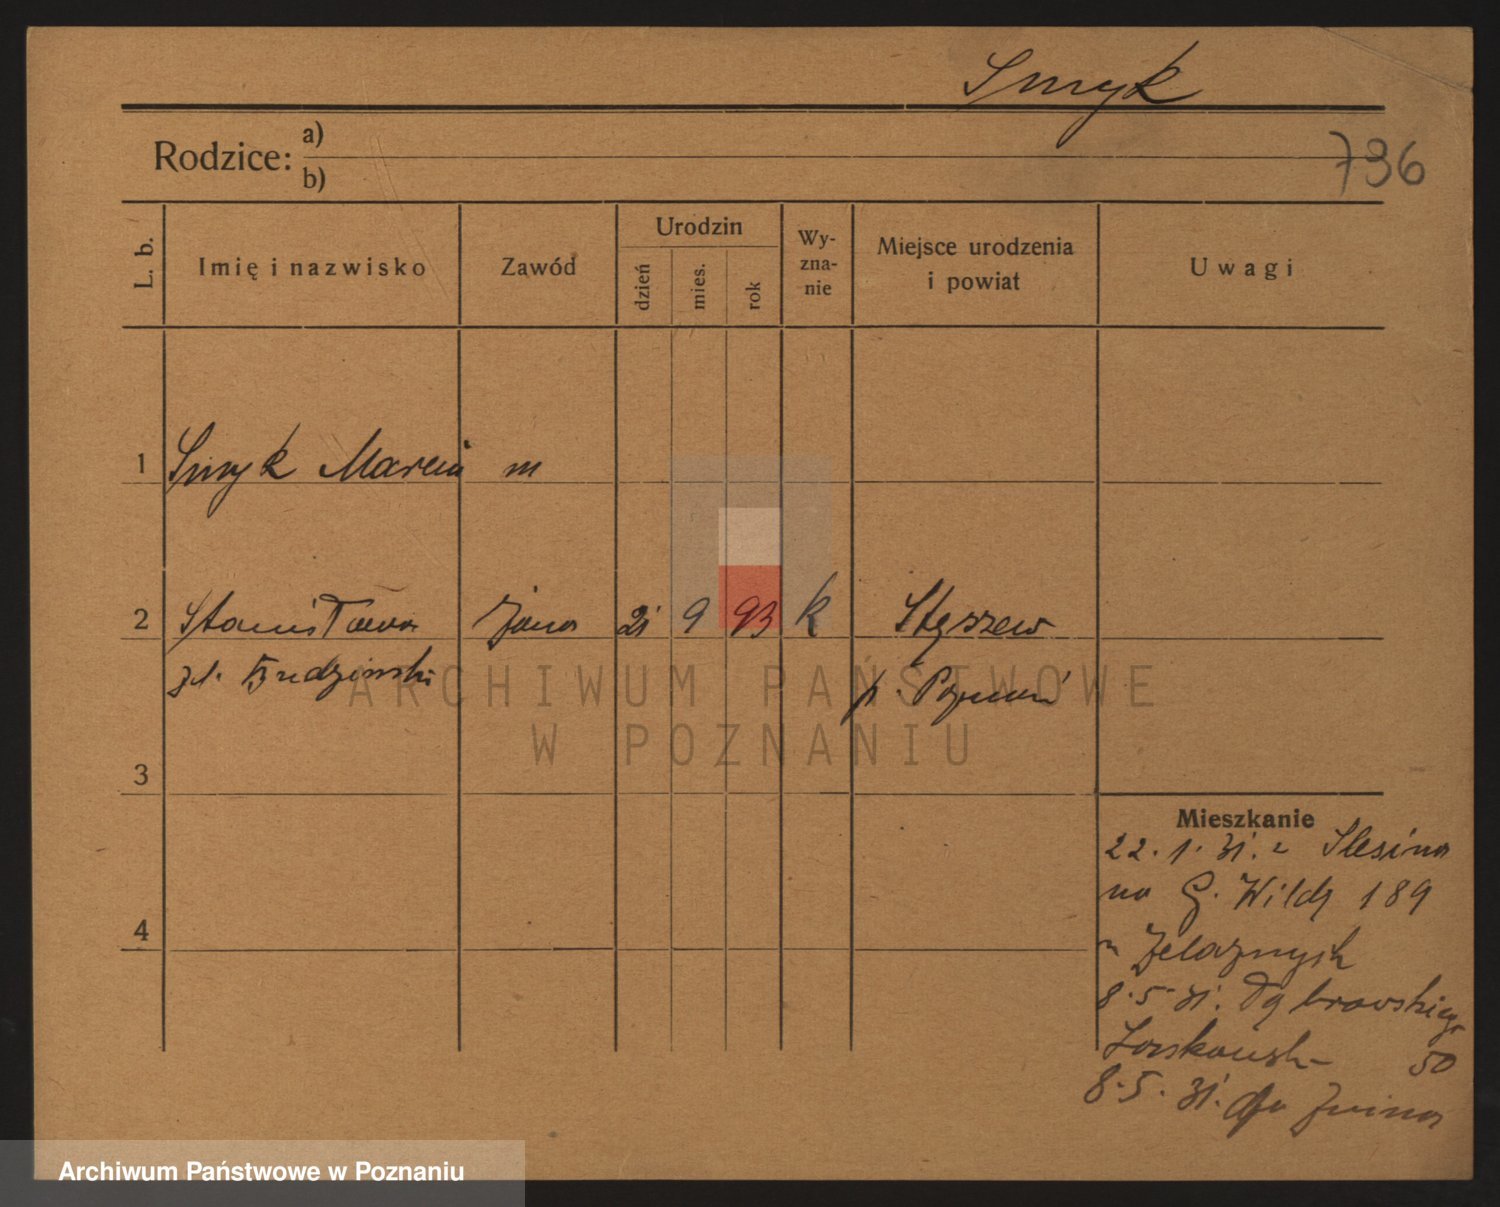 Smyk
Rodzice: a)
b)
736
L. b. Imię i nazwisko Zawód Urodzin dzień mies. rok Wy-zna-nie Miejsce urodzenia i powiat Uwagi
1 Smyk Marcin m
2 Stanisława żona 21 9 93 k Stęszew
zd. Budzinski p. Poznań
3
4
Mieszkanie
22.1.31. z Slesina
na G. Wildą 189
u Żelaznych
8.5.31. Dąbrowskiego
50
8.5.31. do
ARCHIWUM PAŃSTWOWE
W POZNANIU
Archiwum Państwowe w Poznaniu